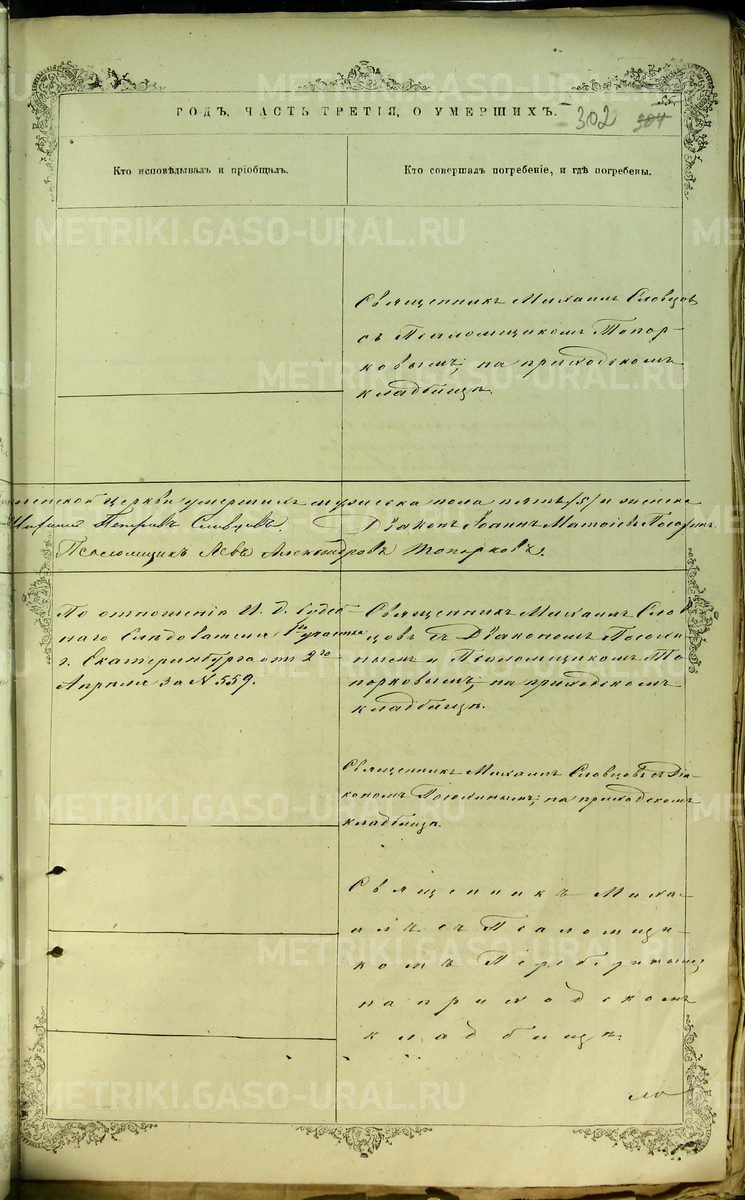 ГОДЪ, ЧАСТЬ ТРЕТІЯ, О УМЕРШИХЪ.
302
304
Кто исповѣдывалъ и пріобщалъ.
Кто совершалъ погребеніе, и гдѣ погребены.
Священникъ Михаилъ Словцовъ
съ Псаломщикомъ Топор-
ковымъ; на приходскомъ
кладбищѣ.
церкви умершихъ мужеска пола пять /5/ и женска
Петровъ Словцовъ. Діаконъ Іоаннъ
Псаломщикъ Левъ Александровъ Топорковъ.
По отношенію И. д. Судеб-
наго Слѣдователя 1го участка
г. Екатеринбурга отъ 2го
Апрѣля за № 559.
Священникъ Михаилъ Слов-
цовъ съ Діакономъ
и Псаломщикомъ То-
порковымъ; на приходскомъ
кладбищѣ.
Священникъ Михаилъ Словцовъ съ Діа-
кономъ на приходскомъ
кладбищѣ.
Священникъ Миха-
илъ съ Псаломщи-
комъ
на приходскомъ
кладбищѣ.
METRIKI.GASO-URAL.RU